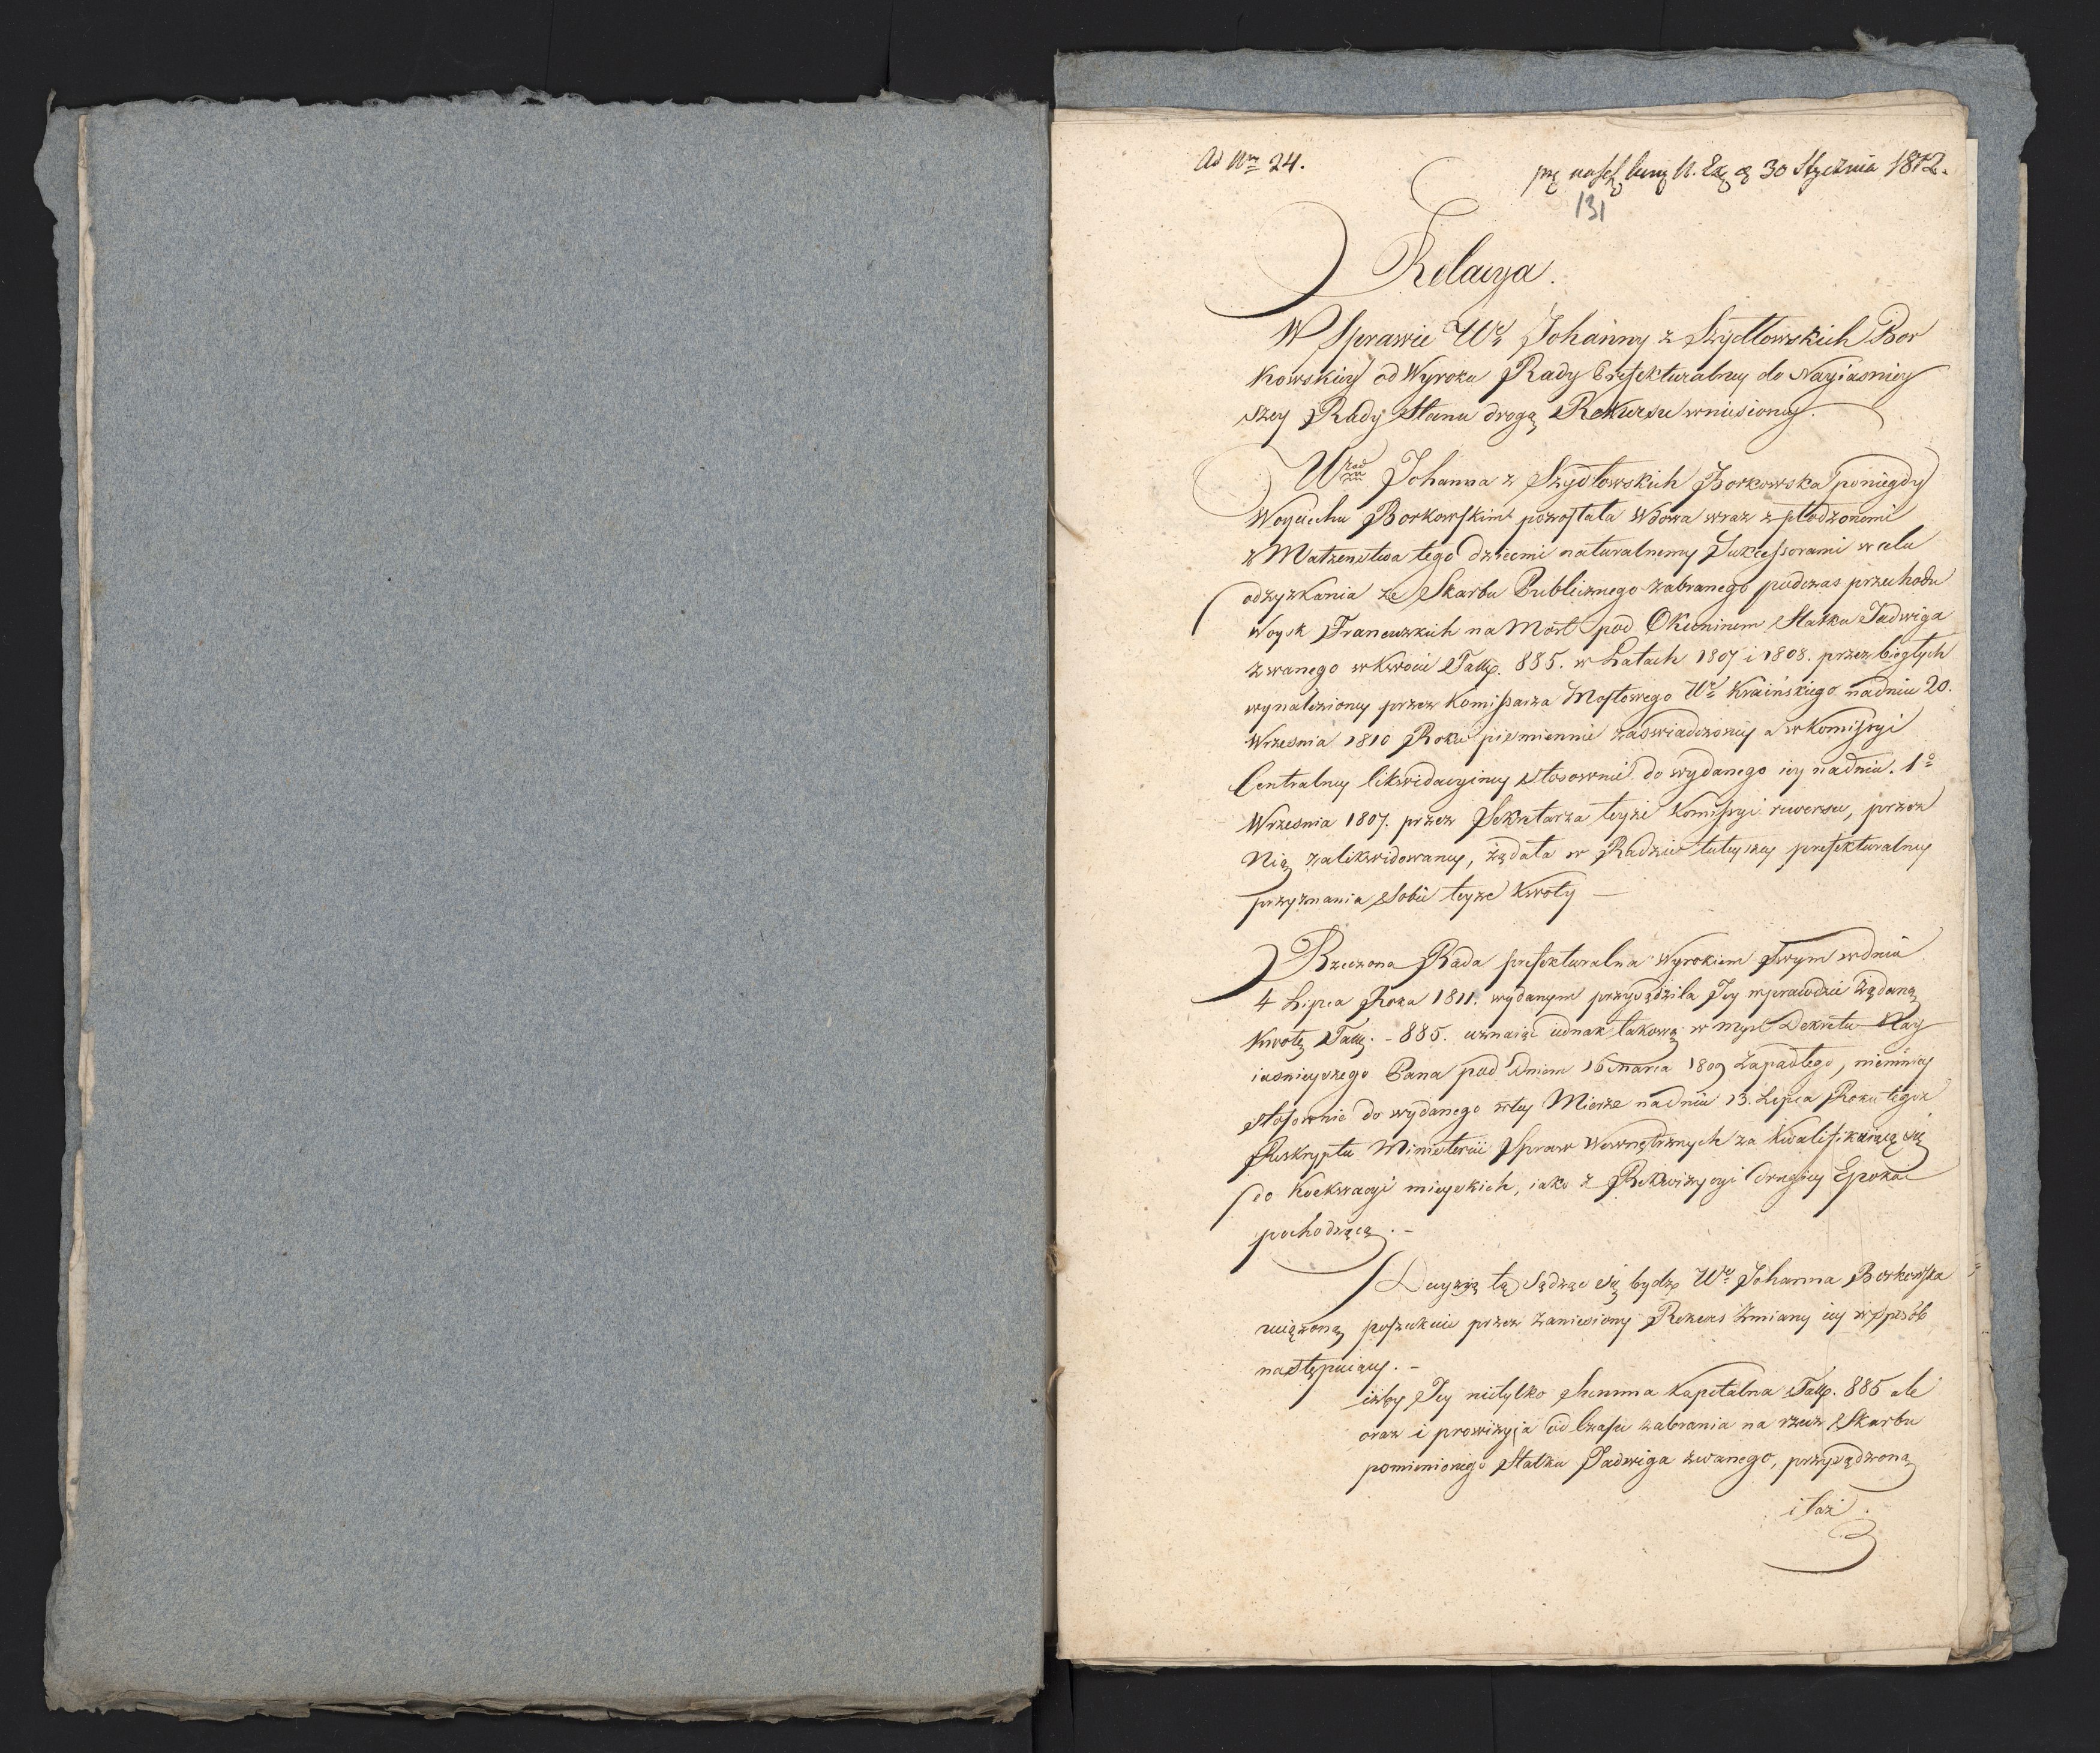 Ad Nrm 24.
30 Stycznia 1812.
131
Relacya.
W Sprawie Wej Johanny z Szydłowskich Bor
kowskiey od Wyroku Rady Prefekturalney do Nayiasniey
szey Rady Stanu drogą Rekursu wniesioney.
Johanna z Szydłowskich Borkowska poniegdy
Woyciechu Borkowskim pozostała Wdowa wraz z płodzonemi
z Małzenstwa tego dziecmi naturalnemy Sukcessorami w celu
odzyzkania ze Skarbu Publicznego zabranego podczas przechodu
Woysk Francuzkich na Most pod Okuninem Statku Jadwiga
zwanego w kwocie Tall. 885. w Latach 1807 i 1808. przez biegłych
wynalezioney przez Komissarza Mostowego Wo Kraińskiego nadniu 20.
Wrzesnia 1810 Roku pismiennie zaswiadczoney a w Komissyi
Centralney likwidacyiney stosownie do wydanego iey nadniu. 1o
Wrzesnia 1807. przez Sekretarza teyże Komissyi rewersu, przez
Nią zalikwidowaney, żądała w Radzie tuteyszey prefekturalney
przyznania sobie teyze kwoty —
Rzeczona Rada prefekturalna Wyrokiem swym w dniu
4 Lipca Roku 1811. wydanym przysądziła Jey wprawdzie żądaną
kwotę Tall. - 885. uznaiąc iednak takową w mysl Dekretu Nay
iasnieyszego Pana pod dniem 16 marca 1809 zapadłego, niemniey
stosownie do wydanego w tey Mierze nadniu 13. Lipca Roku tegoż
Reskryptu Ministerii Spraw Wewnętrznych za kwalifikuiącą się
do Koekwacyi mieyskich, iako z Rekwizycyi drugiey Epoki
pochodzącą. -
Decyzyą tą sądząc się bydz Wa Johanna Borkowska
uciążoną poszukuie przez zaniesiony Rekurs zmiany iey w sposób
następuiący. -
iżby Jey nietylko Summa kapitalna Tall. 885 ale
oraz i prowizyja od Czasu zabrania na rzecz Skarbu
pomienionego Statku Jadwiga zwanego, przysądzoną
i taż